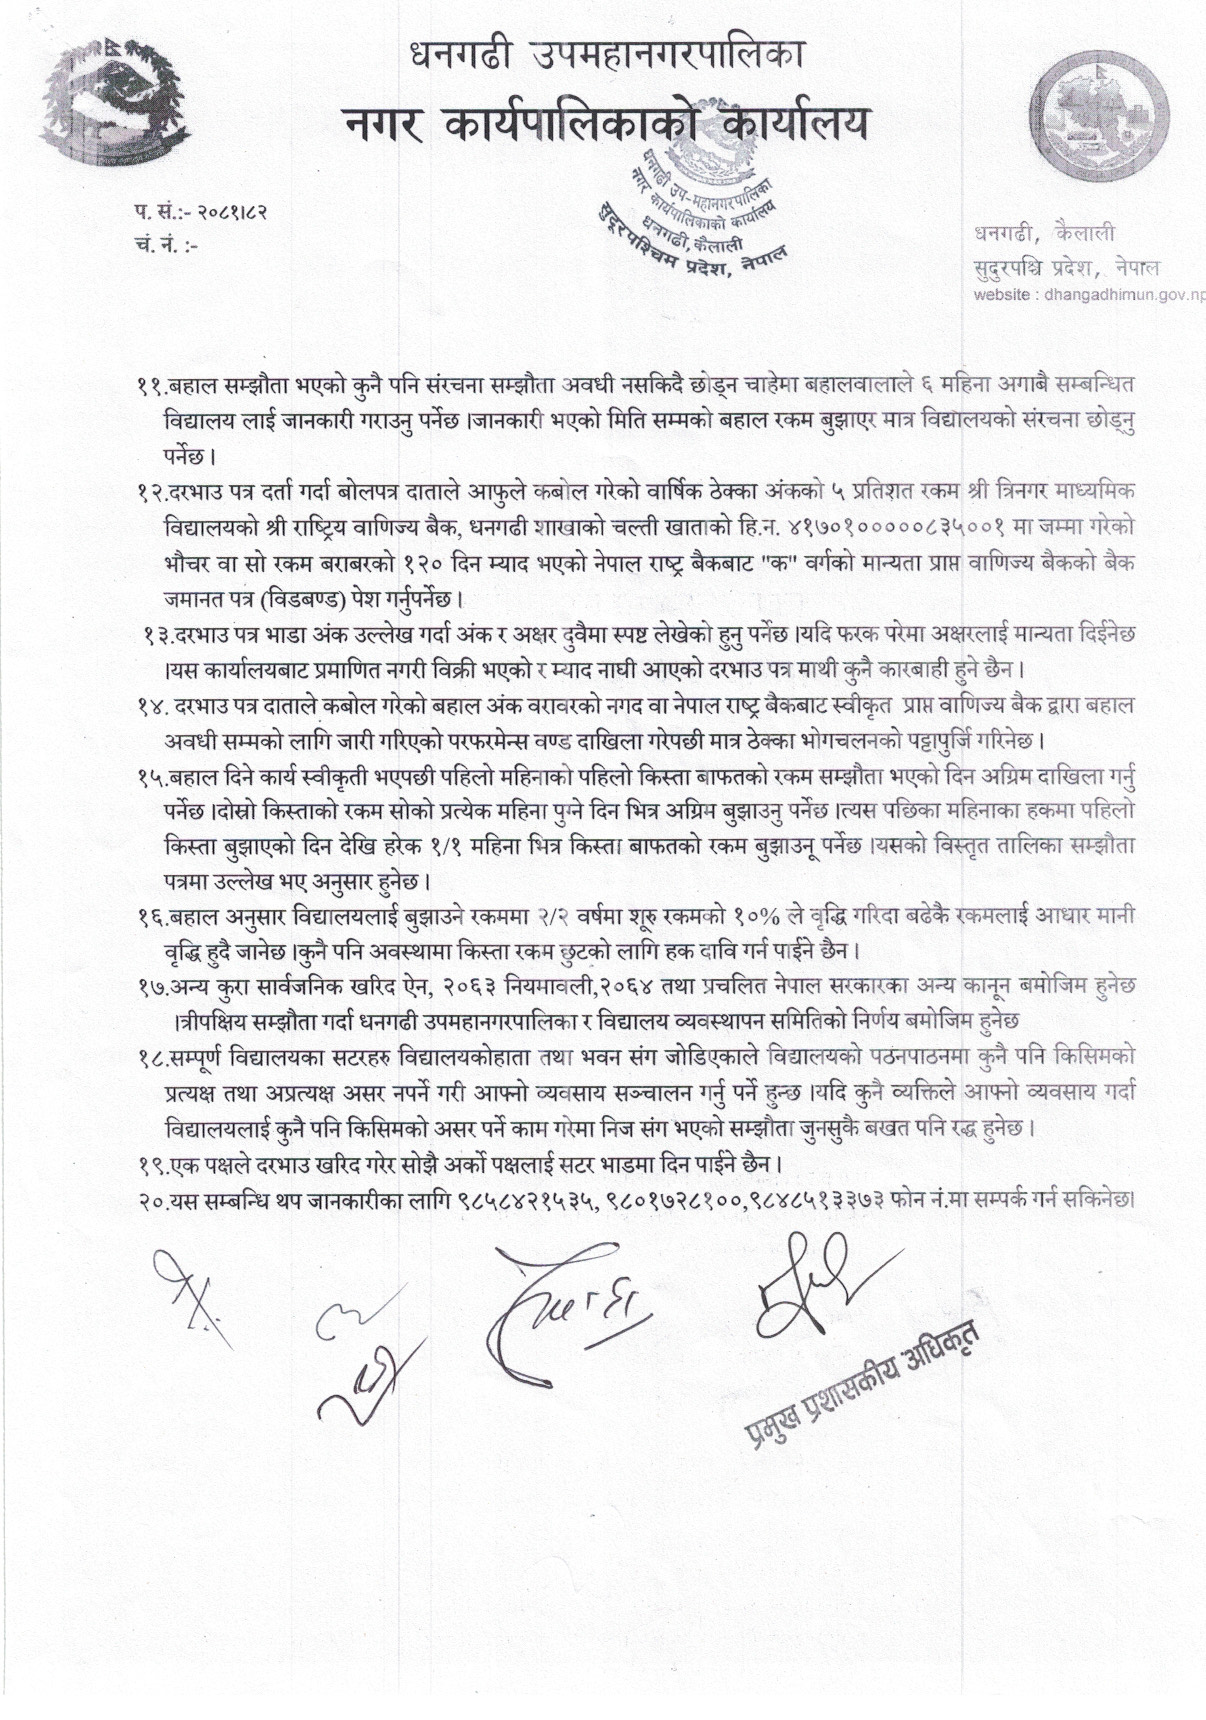 धनगढी उपमहानगरपालिका
नगर कार्यपालिकाको कार्यालय
धनगढी उप-महानगरपालिका
नगर कार्यपालिकाको कार्यालय
धनगढी, कैलाली
सुदूरपश्चिम प्रदेश, नेपाल
प. सं.:- २०८१।८२
चं. नं. :-
धनगढी, कैलाली
सुदुरपश्चि प्रदेश, नेपाल
website : dhangadhimun.gov.np
११.बहाल सम्झौता भएको कुनै पनि संरचना सम्झौता अवधी नसकिदै छोड्न चाहेमा बहालवालाले ६ महिना अगाबै सम्बन्धित
विद्यालय लाई जानकारी गराउनु पर्नेछ ।जानकारी भएको मिति सम्मको बहाल रकम बुझाएर मात्र विद्यालयको संरचना छोड्नु
पर्नेछ ।
१२.दरभाउ पत्र दर्ता गर्दा बोलपत्र दाताले आफुले कबोल गरेको वार्षिक ठेक्का अंकको ५ प्रतिशत रकम श्री त्रिनगर माध्यमिक
विद्यालयको श्री राष्ट्रिय वाणिज्य बैक, धनगढी शाखाको चल्ती खाताको हि.न. ४१७०१०००००८३५००१ मा जम्मा गरेको
भौचर वा सो रकम बराबरको १२० दिन म्याद भएको नेपाल राष्ट्र बैकबाट "क" वर्गको मान्यता प्राप्त वाणिज्य बैकको बैक
जमानत पत्र (विडबण्ड) पेश गर्नुपर्नेछ ।
१३.दरभाउ पत्र भाडा अंक उल्लेख गर्दा अंक र अक्षर दुवैमा स्पष्ट लेखेको हुनु पर्नेछ ।यदि फरक परेमा अक्षरलाई मान्यता दिईनेछ
।यस कार्यालयबाट प्रमाणित नगरी विक्री भएको र म्याद नाघी आएको दरभाउ पत्र माथी कुनै कारबाही हुने छैन ।
१४. दरभाउ पत्र दाताले कबोल गरेको बहाल अंक वरावरको नगद वा नेपाल राष्ट्र बैकबाट स्वीकृत प्राप्त वाणिज्य बैक द्वारा बहाल
अवधी सम्मको लागि जारी गरिएको परफरमेन्स वण्ड दाखिला गरेपछी मात्र ठेक्का भोगचलनको पट्टापुर्जि गरिनेछ ।
१५.बहाल दिने कार्य स्वीकृती भएपछी पहिलो महिनाको पहिलो किस्ता बाफतको रकम सम्झौता भएको दिन अग्रिम दाखिला गर्नु
पर्नेछ ।दोस्रो किस्ताको रकम सोको प्रत्येक महिना पुग्ने दिन भित्र अग्रिम बुझाउनु पर्नेछ ।त्यस पछिका महिनाका हकमा पहिलो
किस्ता बुझाएको दिन देखि हरेक १/१ महिना भित्र किस्ता बाफतको रकम बुझाउनू पर्नेछ ।यसको विस्तृत तालिका सम्झौता
पत्रमा उल्लेख भए अनुसार हुनेछ ।
१६.बहाल अनुसार विद्यालयलाई बुझाउने रकममा २/२ वर्षमा शूरु रकमको १०% ले वृद्धि गरिदा बढेकै रकमलाई आधार मानी
वृद्धि हुदै जानेछ ।कुनै पनि अवस्थामा किस्ता रकम छुटको लागि हक दावि गर्न पाईने छैन ।
१७.अन्य कुरा सार्वजनिक खरिद ऐन, २०६३ नियमावली,२०६४ तथा प्रचलित नेपाल सरकारका अन्य कानून बमोजिम हुनेछ
।त्रीपक्षिय सम्झौता गर्दा धनगढी उपमहानगरपालिका र विद्यालय व्यवस्थापन समितिको निर्णय बमोजिम हुनेछ
१८.सम्पूर्ण विद्यालयका सटरहरु विद्यालयकोहाता तथा भवन संग जोडिएकाले विद्यालयको पठनपाठनमा कुनै पनि किसिमको
प्रत्यक्ष तथा अप्रत्यक्ष असर नपर्ने गरी आफ्नो व्यवसाय सञ्चालन गर्नु पर्ने हुन्छ ।यदि कुनै व्यक्तिले आफ्नो व्यवसाय गर्दा
विद्यालयलाई कुनै पनि किसिमको असर पर्ने काम गरेमा निज संग भएको सम्झौता जुनसुकै बखत पनि रद्ध हुनेछ ।
१९.एक पक्षले दरभाउ खरिद गरेर सोझै अर्को पक्षलाई सटर भाडमा दिन पाईने छैन ।
२०.यस सम्बन्धि थप जानकारीका लागि ९८५८४२१५३५, ९८०१७२८१००,९८४८५१३३७३ फोन नं.मा सम्पर्क गर्न सकिनेछ।
प्रमुख प्रशासकीय अधिकृत